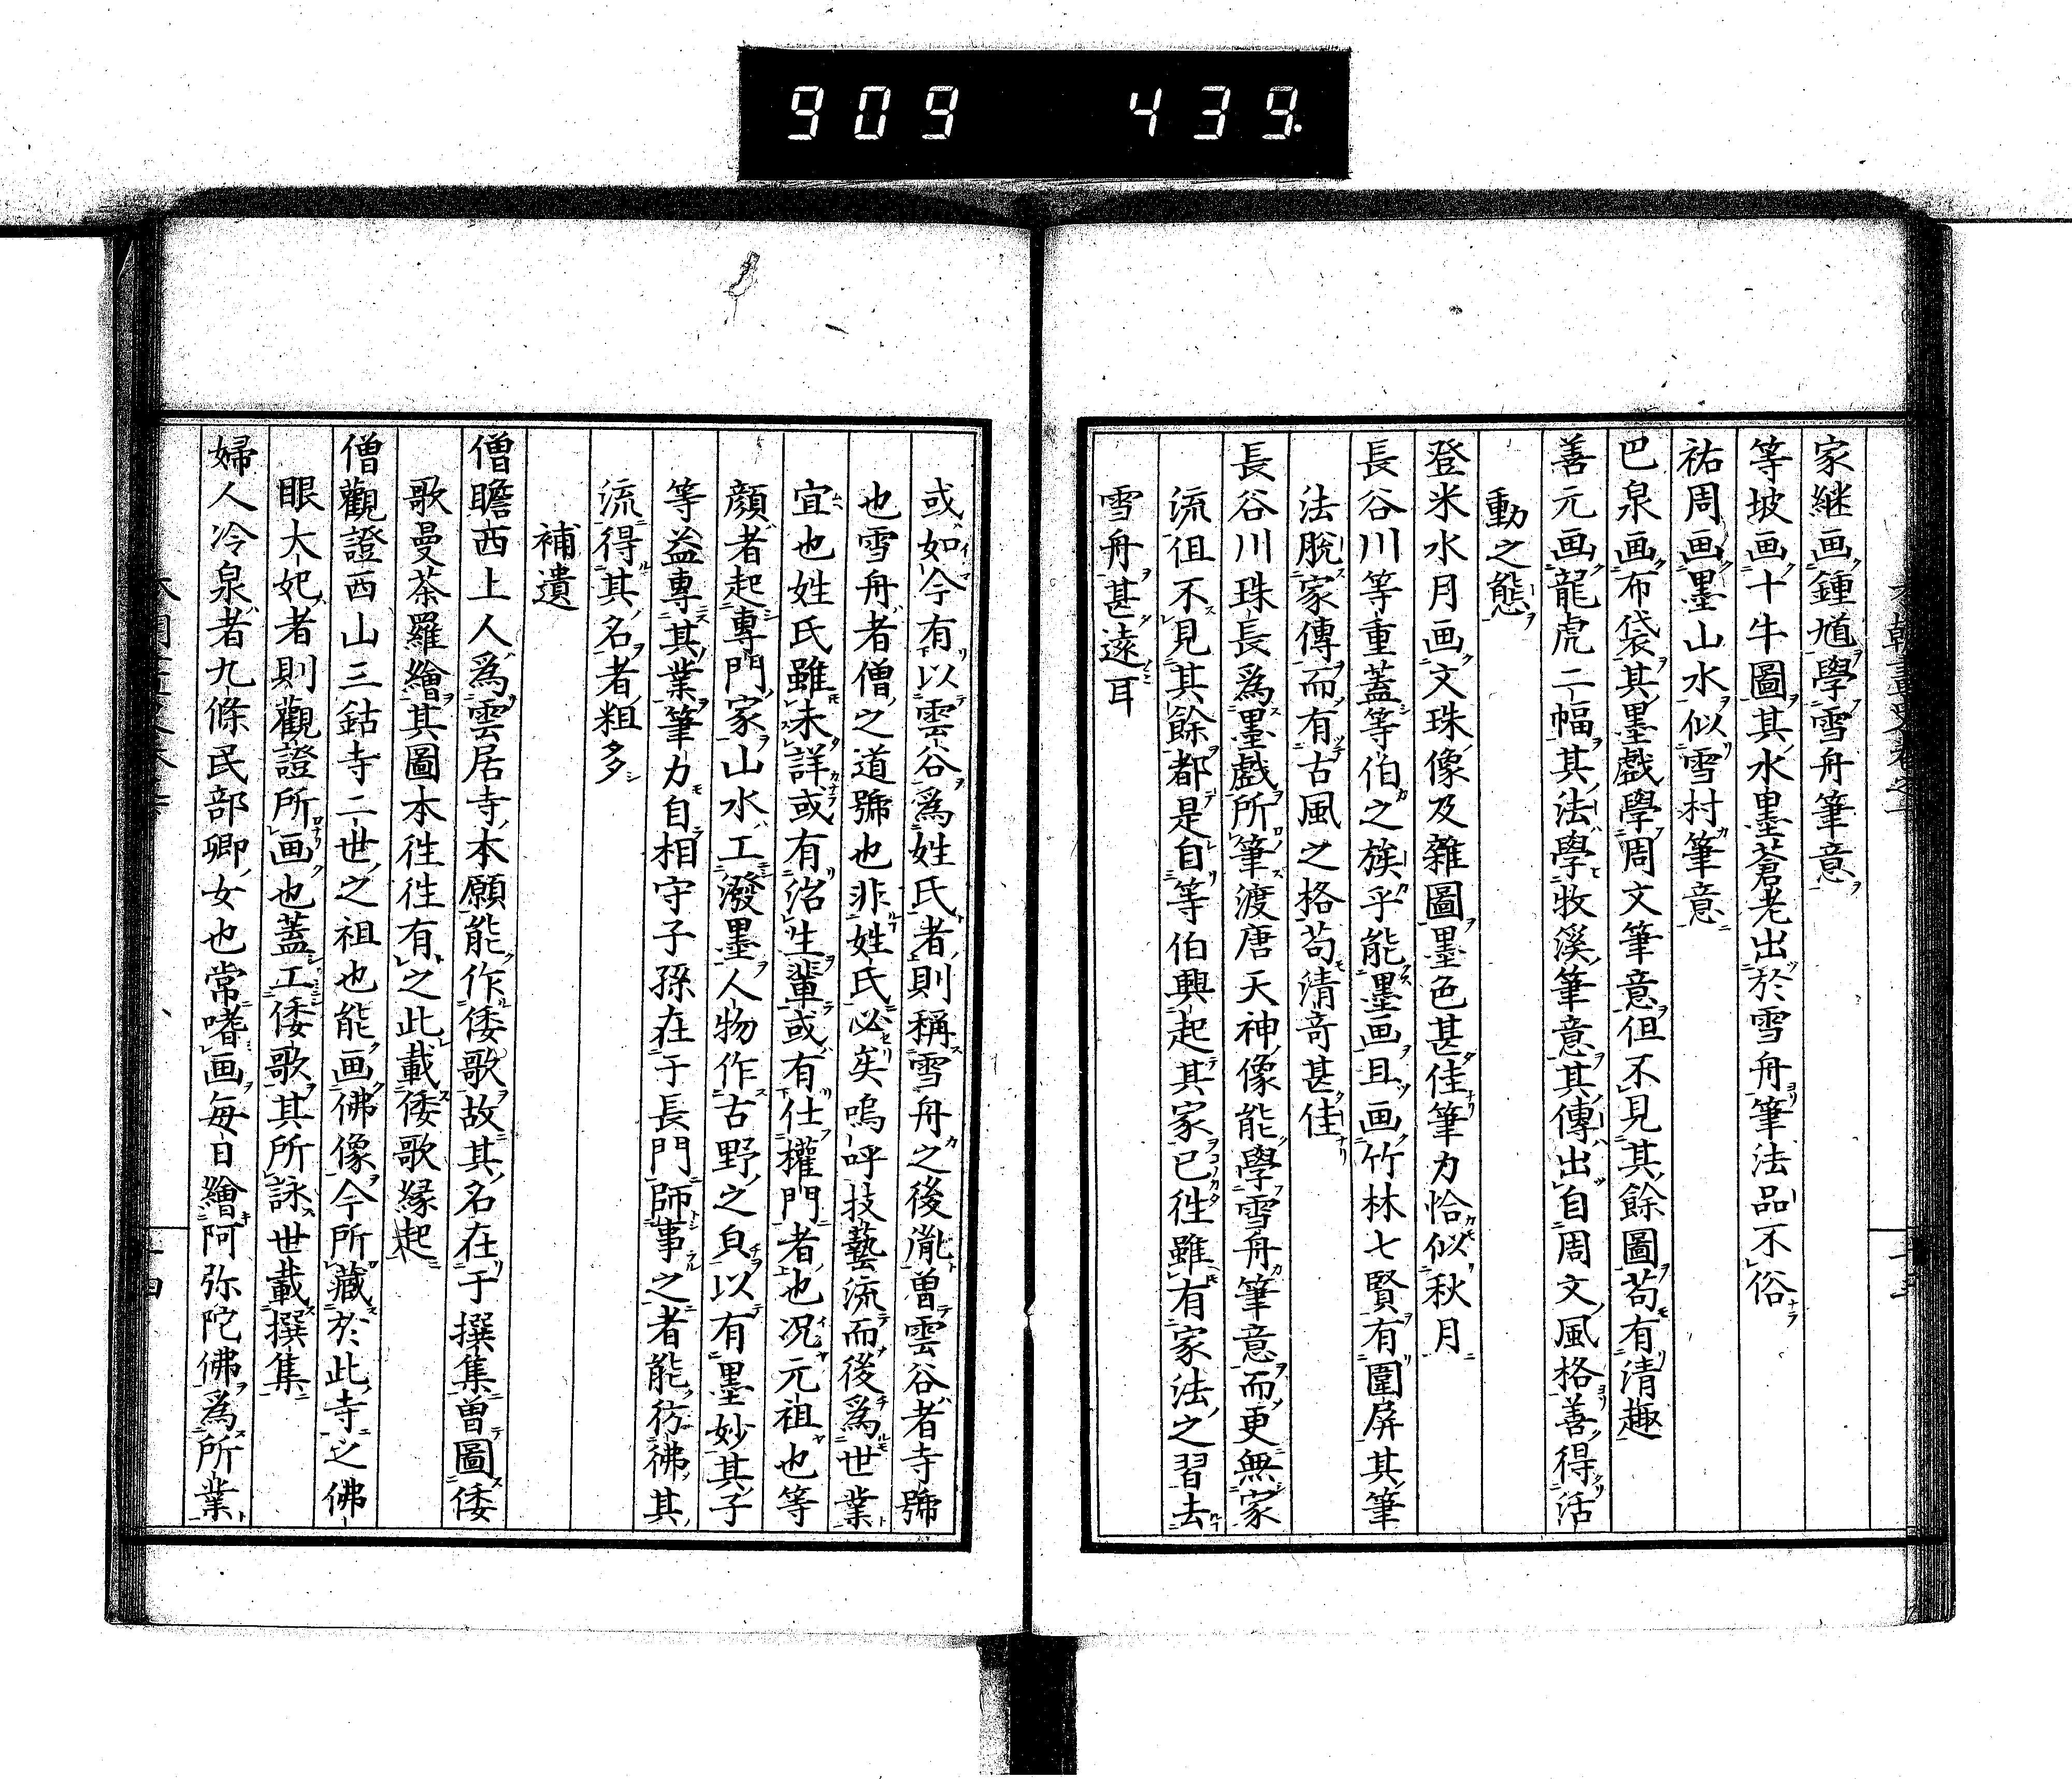 909 439.
家継画鍾馗學雪舟筆意
等坡画十牛圖其水墨蒼老出於雪舟筆法品不俗
祐周画墨山水似雪村筆意
巴泉画布袋其墨戯學周文筆意但不見其餘圖苟有清趣
善元画龍虎二幅其法學牧溪筆意其傳出自周文風格善得活
動之態
登米水月画文珠像及雜圖墨色甚佳筆力恰似秋月
長谷川等重蓋等伯之族乎能墨画且画竹林七賢有圍屏其筆
法脫家傳而有古風之格苟清奇甚佳
長谷川珠長爲墨戯所筆渡唐天神像能學雪舟筆意而更無家
流但不見其餘都是自等伯興起其家已徃雖有家法之習去
雪舟甚遠耳
或如今有以雲谷爲姓氏者則稱雪舟之後胤曽雲谷者寺號
也雪舟者僧之道號也非姓氏必矣嗚呼技藝流而後爲世業
宜也姓氏雖未詳或有治生輩或有仕權門者也况元祖也等
顔者起專門家山水工潑墨人物作古野之皃以有墨妙其子
等益專其業筆力自相守子孫在于長門師事之者能彷彿其
流得其名者粗多
補遺
僧瞻西上人爲雲居寺本願能作倭歌故其名在于撰集曽圖倭
歌曼荼羅繪其圖本徃徃有之此載倭歌縁起
僧觀證西山三鈷寺二世之祖也能画佛像今所藏於此寺之佛
眼大妃者則觀證所画也蓋工倭歌其所詠世載撰集
婦人冷泉者九條民部卿女也常嗜画毎日繪阿弥陀佛爲所業